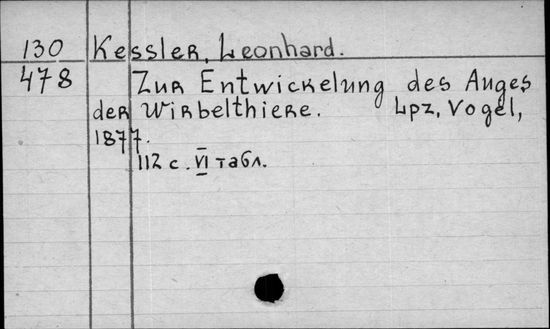 130 Kessler, Leonhard.
478 Zur Entwickelung des Auges
der Wirbelthiere. Lpz, Vogel,
1877.
112 с. VI табл.